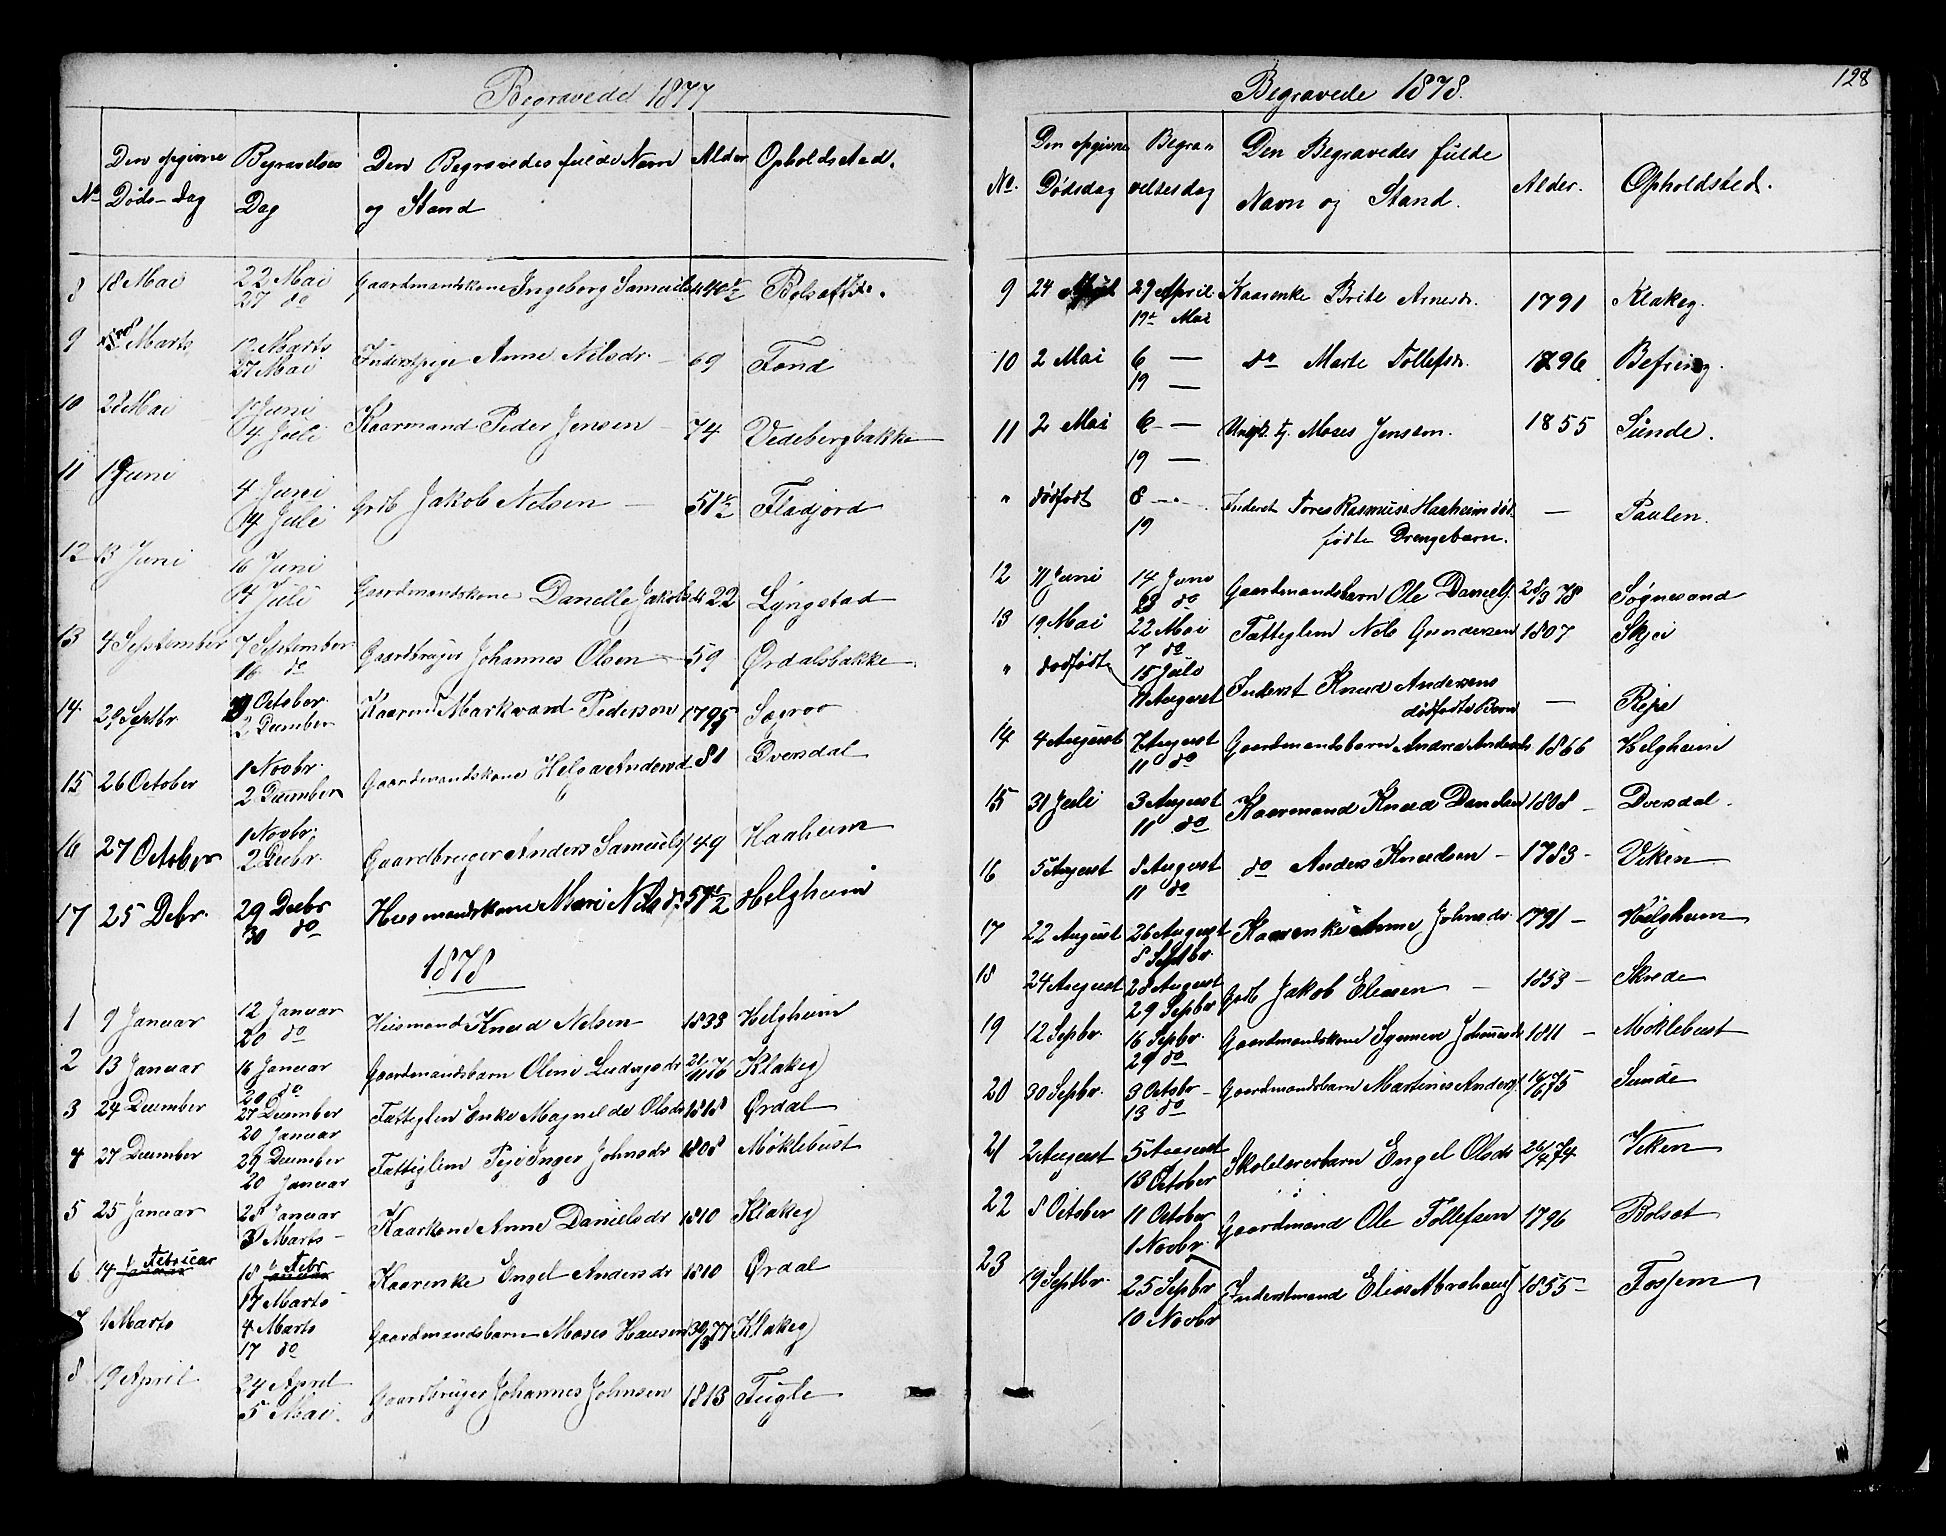 Begravede 1877
No Den opgivne Døds-Dag Begravelses Dag Den Begravedes fulde Navn og Stand Alder Opholdsted.
8 18 Mai 22 Mai 27 do Gaardmandskone Ingeborg Samuelsd 40 1/2 Bolsat
9 Marts 12 Marts 27 Mai Inderstpige Anne Nilsdr. 69 Fond
10 28 Mai 1 Juni 14 Juli Kaarmand Peder Jensen 74 Vedebergbakke
11 1 Juni 4 Juni 14 Juli Grdb Jakob Nelsen 51 1/2 Fladjord
12 13 Juni 16 Juni 14 Juli Gaardmandskone Danelle Jakobsd 22 Lyngstad
13 4 September 7 September 16 do Gaardbruger Johannes Olsen 59 Ørdalsbakke
14 29 Septbr October 2 December Kaarmd Markvard Pederson 1795 Sægrov
15 26 October 1 Novbr. 2 December Gaardmandskone Helga Andersd 81 Dversdal
16 27 October 1 Novbr. 2 Decbr. Gaardbruger Anders Samuels 49 Haaheim
17 25 Debr. 29 Decbr 30 do Husmandskone Mari Nilsd. 57 1/2 Helgheim
1878
1 9 Januar 12 Januar 20 do Husmand Knud Nelsen 1833 Helgheim
2 13 Januar 16 Januar 20 do Gaardmandsbarn Oline Ludvigsdr Klakeg
3 24 December 27 December 20 Januar Fattiglem Enke Magnelde Olsdr 1818 Ørdal
4 27 December 29 December 20 Januar Fattiglem Pige Inger Johnsdr 1808 Møklebust
5 25 Januar 28 Januar 3 Marts Kaarkone Anne Danielsdr 1810 Klakeg
6 14 Februar 18 Febr 17 Marts Kaarenke Engel Andersdr 1810 Ørdal
7 1 Marts 4 Marts 17 do Gaardmandsbarn Moses Hansen 77 Klakeg
8 19 April 24 April 5 Mai. Gaardbruger Johannes Johnsen 1813 Fugle
Begravede 1878.
128
No. Den opgivne Dødsdag Begravelsesdag Den Begravedes fulde Navn og Stand. Alder. Opholdsted.
9 24 29 April 19 Mai Kaarenke Brite Arnesdr. 1791 Klakeg.
10 2 Mai 6 — 19 — do Marte Tollefsdr. 1796 Befring.
11 2 Mai 6 — 19 — Ungk. Moses Jensen. 1855 Sunde.
" dødfødt 8 — 19 Inderst Tores Rasmusen Haaheim død fødte Drengebarn. — Paulen.
12 11 Juni 14 Juni 23 do Gaardmandsbarn Ole Daniels. 28/3 78 Søgnesand
13 19 Mai 22 Mai 7 do Fattiglem Nels Gundersen 1807 Skjei
" dødfødt 15 Juli 11 August Inderst Knud Andersens dødfødte Barn — Reje
14 4 August 7 August 11 do Gaardmandsbarn Andrea Andersdr 1866 Helgheim
15 31 Juli 3 August 11 do Kaarmand Knud 1808 — Dversdal.
16 5 August 8 August 11 do do Anders Knudsen — 1783 — Viken
17 22 August 26 August 8 Septbr. Kaarenke Anne Johnsdr 1791 — Helgheim
18 24 August 28 August 29 Sepbr Grdb Jakob Eliesen — 1853 — Skrede
19 12 Sepbr. 16 Sepbr. 29 do Gaardmandskone Synneve Johannesdr 1811 — Møklebust
20 30 Sepbr. 3 Octobr — 13 do Gaardmandsbarn Martines Anders 75 Sunde
21 2 August 5 August 13 October Skolelærerbarn Engel Olsdr 26/4 74 Viken
22 8 October 11 October 1 Novbr. Gaardmand Ole Tollefsen 1796 Bolsat
23 19 Septbr. 25 Sepbr 10 Novbr Inderstmand Elias Abrahams 1855 — Fossem